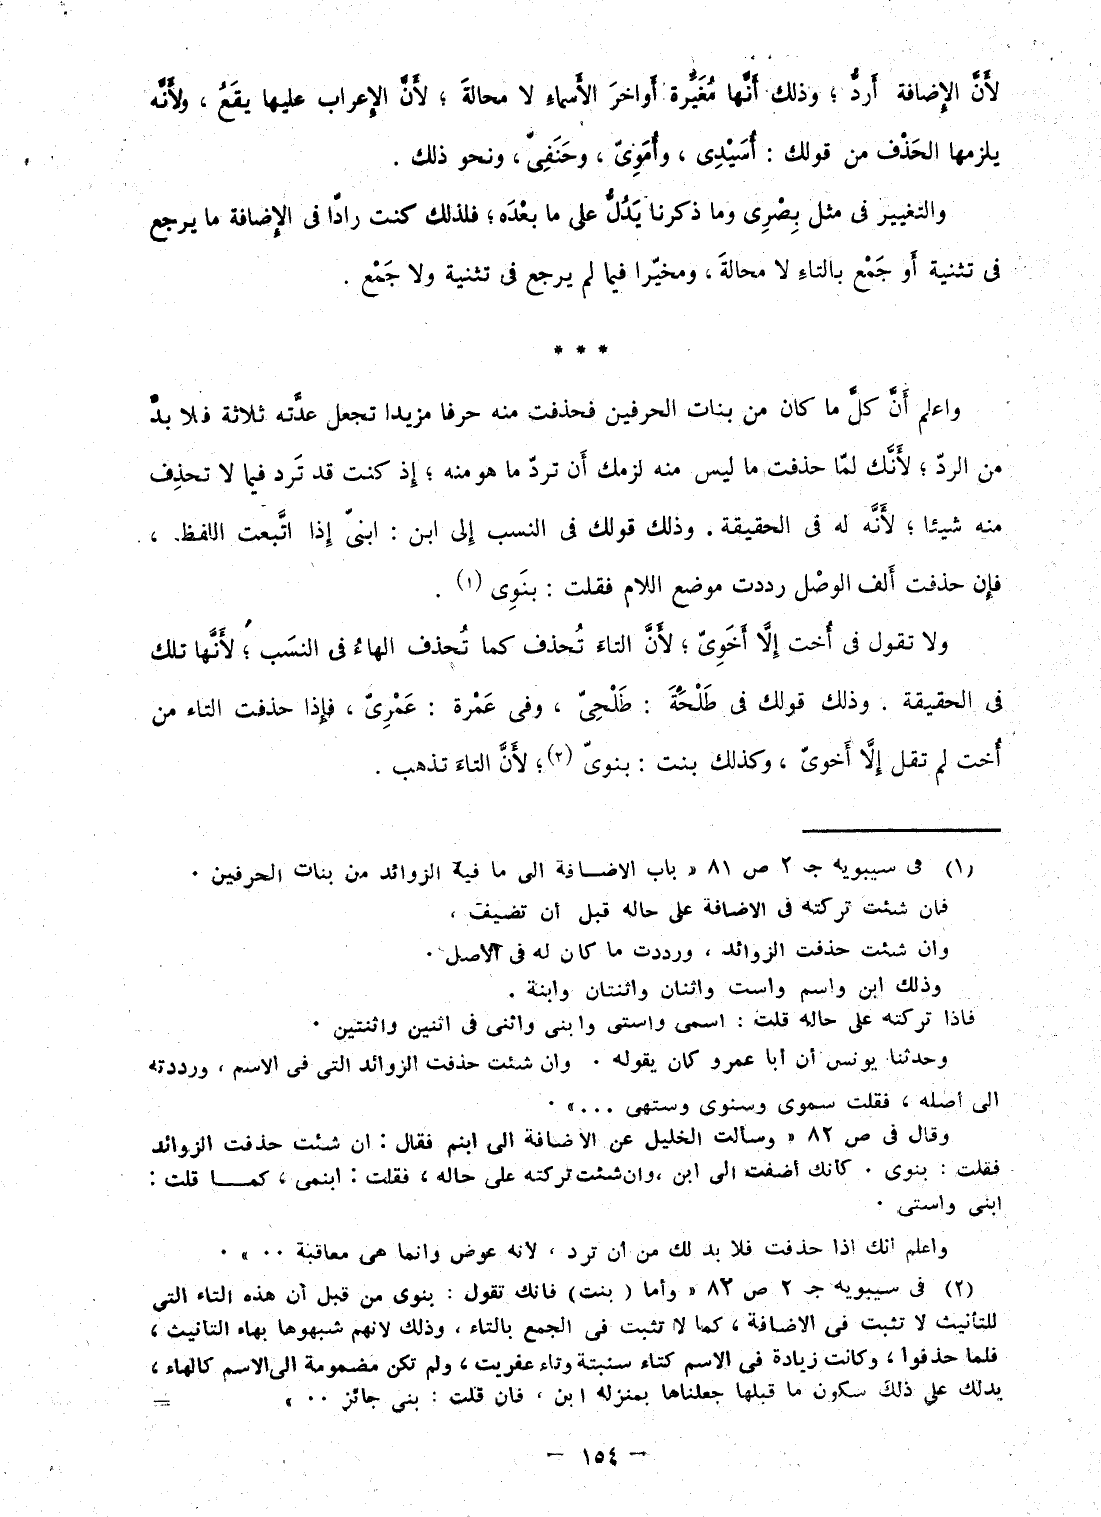 لأَنَّ الإِضافة أَردُّ ؛ وذلك أَنَّها مُغَيِّرة أَواخرَ الأَسماءِ لا محالةَ ؛ لأَنَّ الإِعراب عليها يقَعُ ، ولأَنَّه
يلزمها الحَذْف من قولك : أُسَيْدِى ، وأُمَوِىّ ، وحَنَفِىّ ، ونحو ذلك .
والتغيير فى مثل بِصْرِى وما ذكرنا يَدُلُّ على ما بعْدَه ؛ فلذلك كنت رادًّا فى الإِضافة ما يرجع
فى تثنية أَو جَمْع بالتاءِ لا محالةَ ، ومخيّرا فيما لم يرجع فى تثنية ولا جَمْع .
* * *
واعلم أَنَّ كلَّ ما كان من بنات الحرفين فحذفت منه حرفا مزيدا تجعل عدَّته ثلاثة فلا بدَّ
من الردّ ؛ لأَنَّك لمّا حذفت ما ليس منه لزمك أَن تردّ ما هو منه ؛ إِذ كنت قد تَرد فيما لا تحذِف
منه شيئا ؛ لأَنَّه له فى الحقيقة . وذلك قولك فى النسب إِلى ابن : ابنىّ إِذا اتَّبعت اللفظ ،
فإِن حذفت أَلف الوصْل رددت موضع اللام فقلت : بنَوِى (١) .
ولا تقول فى أُخت إِلَّا أَخَوِىّ ؛ لأَنَّ التاءَ تُحذف كما تُحذف الهاءُ فى النسَب ؛ لأَنَّها تلك
فى الحقيقة . وذلك قولك فى طَلْحَةَ : طَلْحِىّ ، وفى عَمْرة : عَمْرِىّ ، فإِذا حذفت التاء من
أُخت لم تقل إِلَّا أَخوىّ ، وكذلك بنت : بنوىّ (٢) ؛ لأَنَّ التاءَ تذهب .
(١) فى سيبويه جـ ٢ ص ٨١ « باب الاضافة الى ما فية الزوائد من بنات الحرفين .
فان شئت تركته فى الاضافة على حاله قبل أن تضيف ،
وان شئت حذفت الزوائد ، ورددت ما كان له فى الأصل .
وذلك ابن واسم واست واثنان واثنتان وابنة .
فاذا تركته على حاله قلت : اسمى واستى وابنى واثنى فى اثنين واثنتين .
وحدثنا يونس أن أبا عمرو كان يقوله . وان شئت حذفت الزوائد التى فى الاسم ، ورددته
الى أصله ، فقلت سموى وسنوى وستهى ... » .
وقال فى ص ٨٢ « وسألت الخليل عن الاضافة الى ابنم فقال : ان شئت حذفت الزوائد
فقلت : بنوى . كأنك أضفت الى ابن ، وان شئت تركته على حاله ، فقلت : ابنمى ، كما قلت :
ابنى واستى .
واعلم انك اذا حذفت فلا بد لك من أن ترد ، لأنه عوض وانما هى معاقبة .. » .
(٢) فى سيبويه جـ ٢ ص ٨٢ « وأما ( بنت ) فانك تقول : بنوى من قبل أن هذه التاء التى
للتأنيث لا تثبت فى الاضافة ، كما لا تثبت فى الجمع بالتاء ، وذلك لانهم شبهوها بهاء التانيث ،
فلما حذفوا ، وكانت زيادة فى الاسم كتاء سنبتة وتاء عفريت ، ولم تكن مضمومة الى الاسم كالهاء ،
يدلك على ذلك سكون ما قبلها جعلناها بمنزلة ابن ، فان قلت : بنى جائز .. »
=
— ١٥٤ —